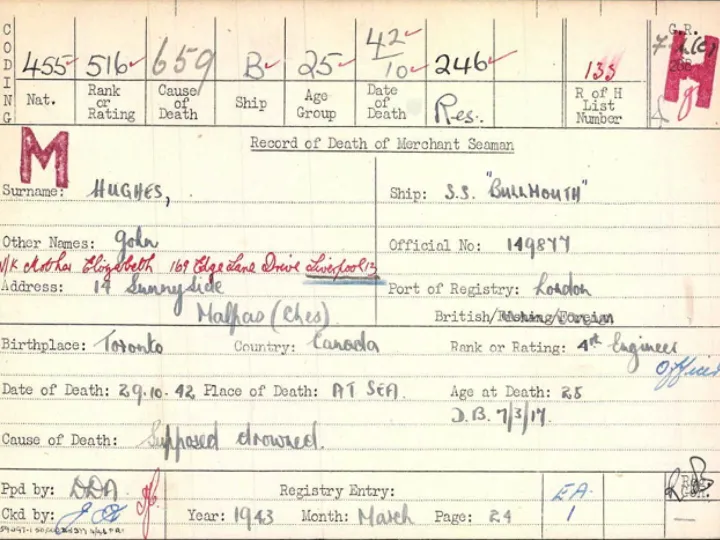 C O D I N G
455 516 659 B 25 42/10 246 133
Nat. Rank or Rating Cause of Death Ship Age Group Date of Death Res. R of H List Number
H
M
Record of Death of Merchant Seaman
Surname: HUGHES,
Ship: S.S. "BULLMOUTH"
Other Names: John
Official No: 149877
N/K Mother Elizabeth 169 Edge Lane Drive Liverpool 13
Address: 14 Sunnyside
Malpas (Ches)
Port of Registry: London
British/Fishing/Foreign
Birthplace: Toronto Country: Canada
Rank or Rating: 4th Engineer
Officer
Date of Death: 29.10.42 Place of Death: AT SEA.
Age at Death: 25
D.B. 7/3/17.
Cause of Death: Supposed drowned.
Ppd by: DDA
Registry Entry: EA.
Ckd by:
Year: 1943 Month: March Page: 24 1